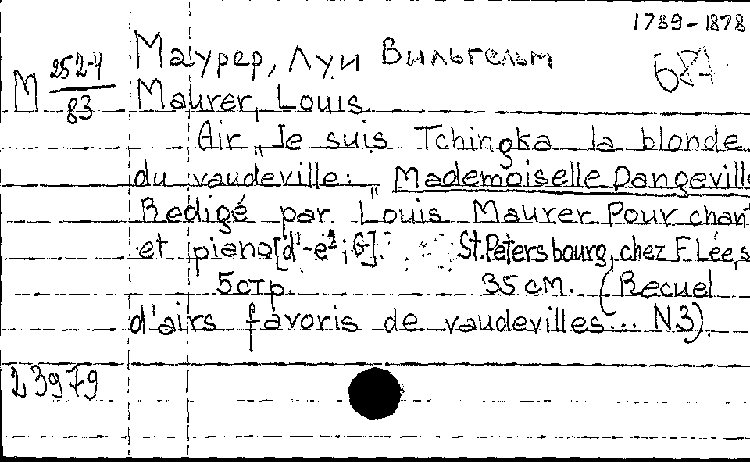 1789-1878
Маурер, Луи Вильгельм
687
M 252-4/83
Maurer, Louis.
Air „Je suis Tchingka la blonde
du vaudeville: „Mademoiselle Dangeville
Redigé par Louis Maurer Pour chant
et piano [d¹-e²; G]. St. Petersbourg, chez F. Lée, s
5 стр. 35 см. (Recuel
d'airs favoris de vaudevilles... N3).
23979